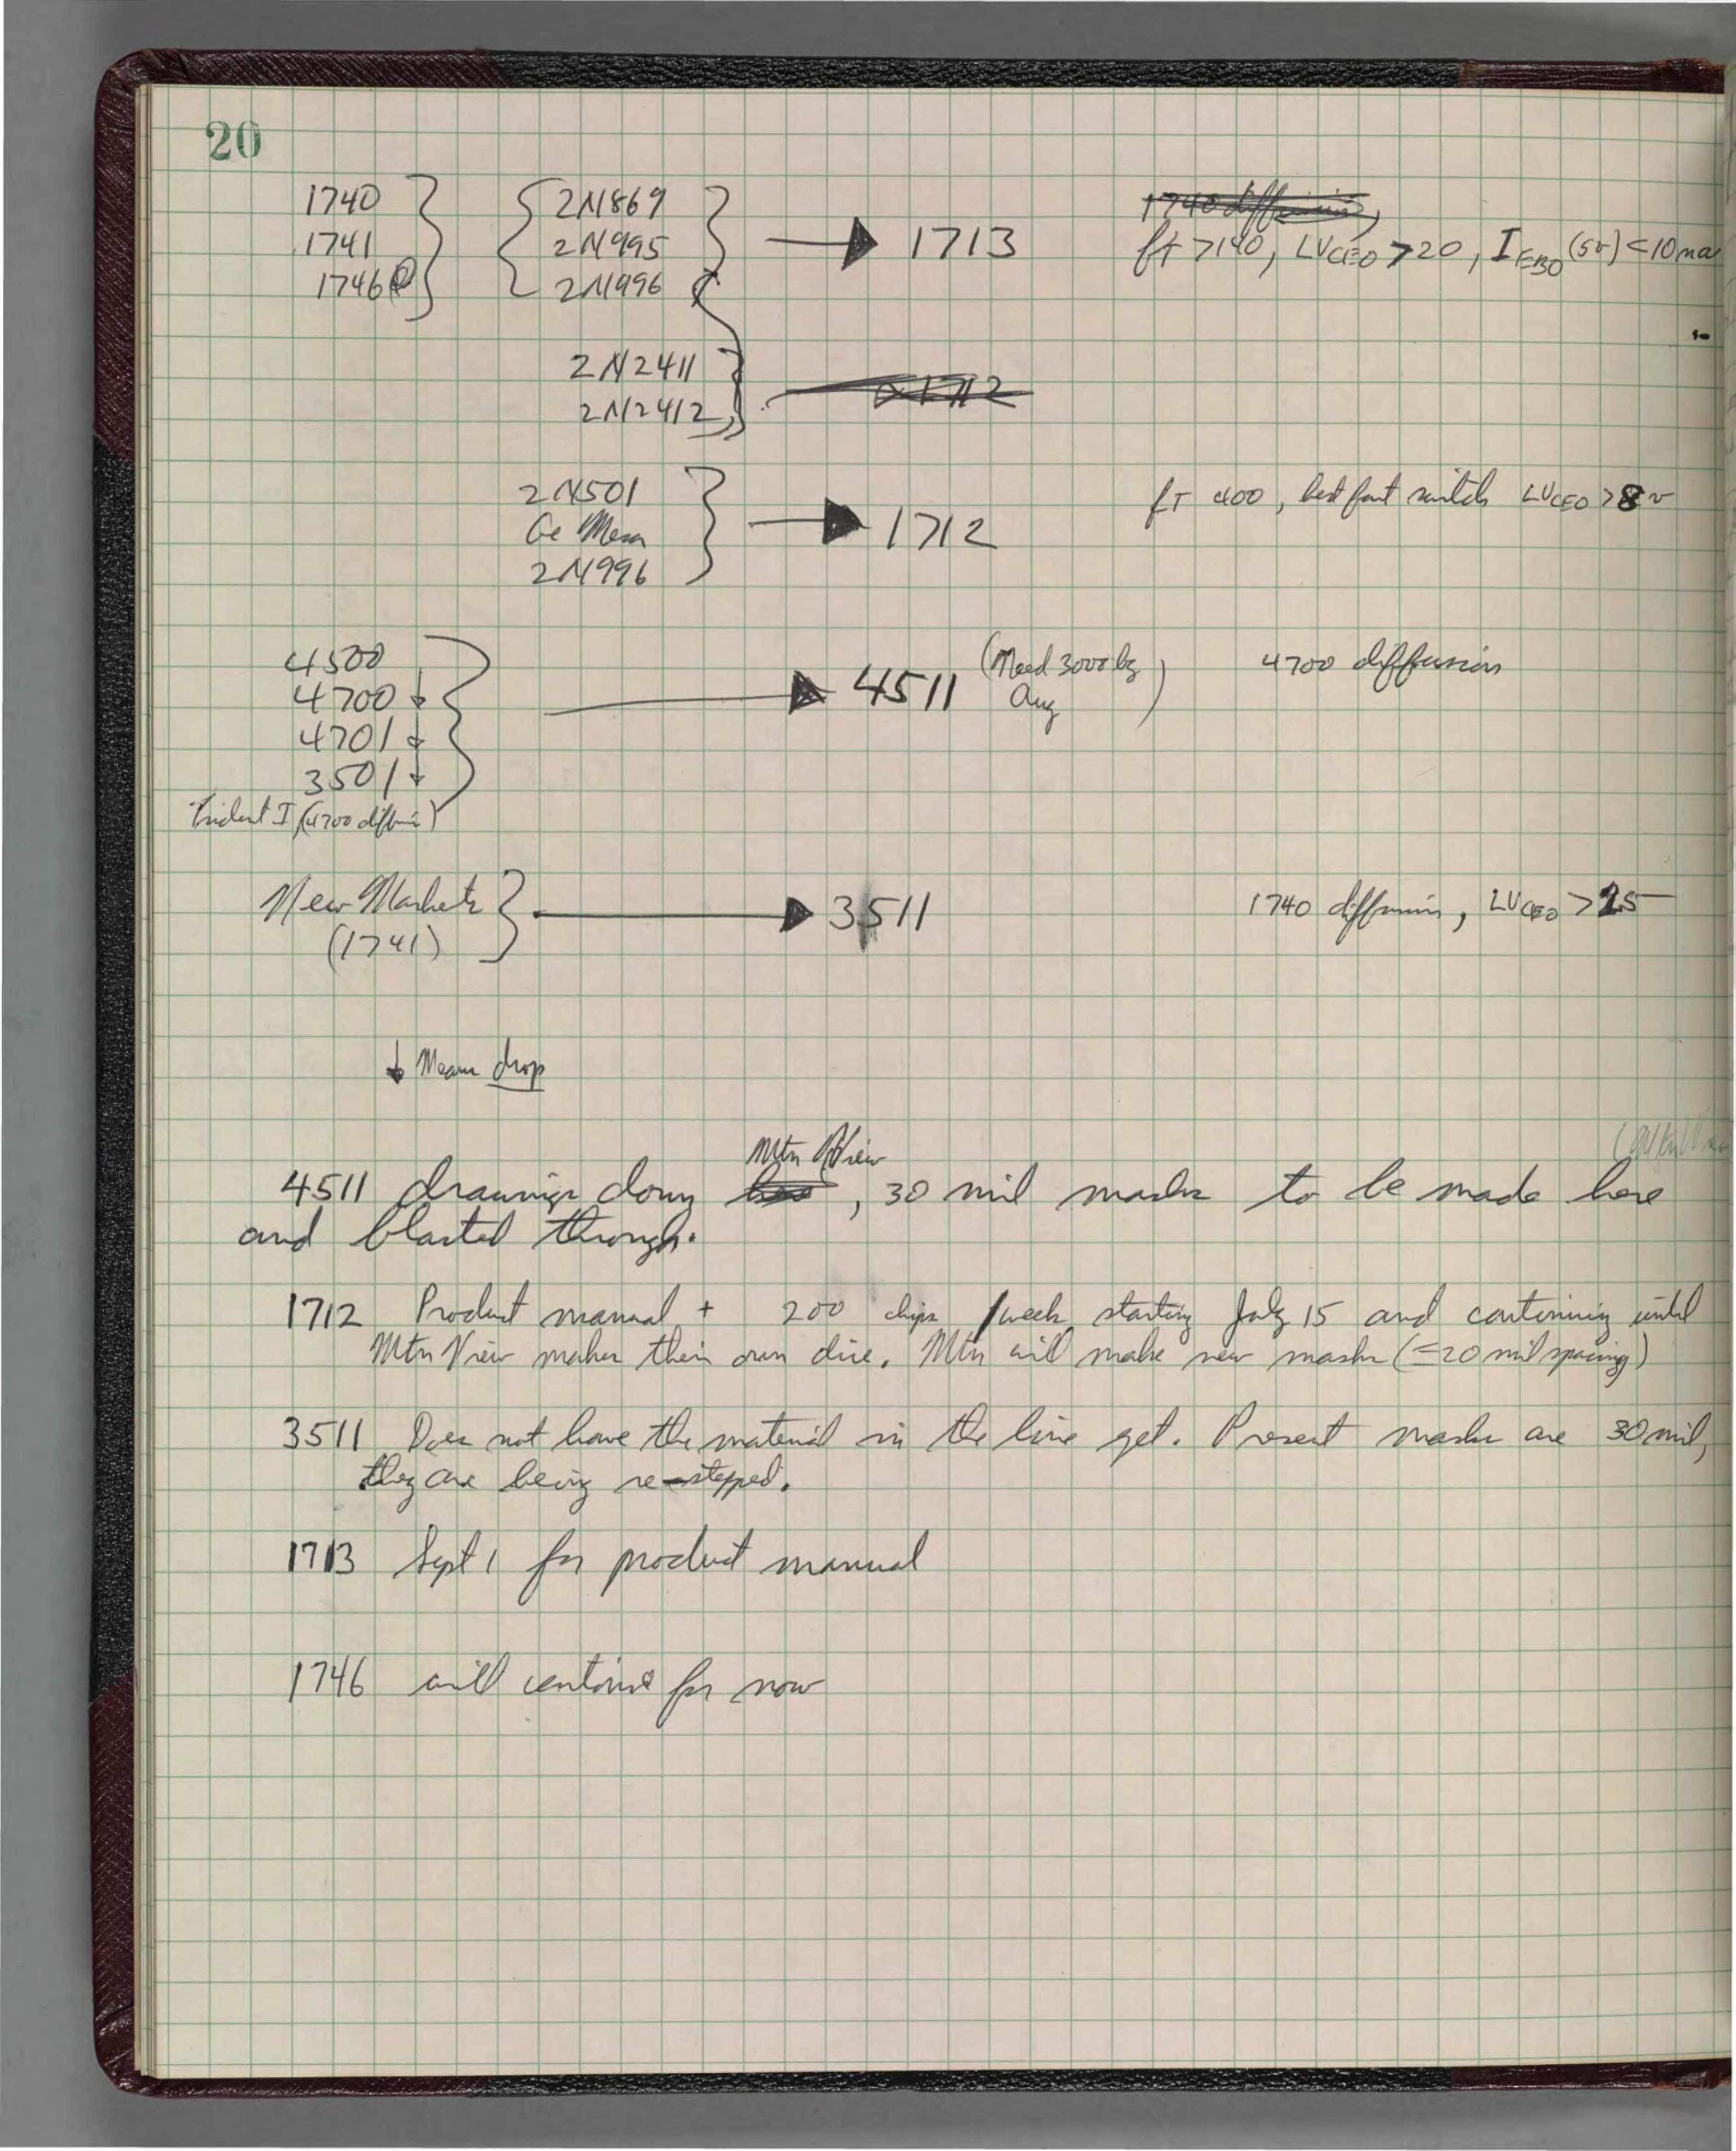 20
1740 2N869
1741 2N995 → 1713 ft >140, LVCEO >20, IEBO (5v) <10na
1746 2N996
2N2411
2N2412 1712
2N501
Ge Mesa → 1712 fT 400, best fast switch LVCEO >8v
2N996
4500
4700 ↓ → 4511 (Need 3000 by Aug) 4700 diffusion
4701 ↓
3501 ↓
Trident I (4700 diffusion)
New Markets → 3511 1740 diffusion, LVCEO >25
(1741)
↓ Means drop
Mtn View
4511 drawings being , 30 mil masks to be made here
and blasted through.
1712 Product manual + 200 chips /week starting July 15 and continuing until
Mtn View makes their own dice. Mtn will make new masks (=20 mil spacing)
3511 Does not have the material in the line yet. Present masks are 30 mil,
they are being re-stepped.
1713 Sept 1 for product manual
1746 will continue for now